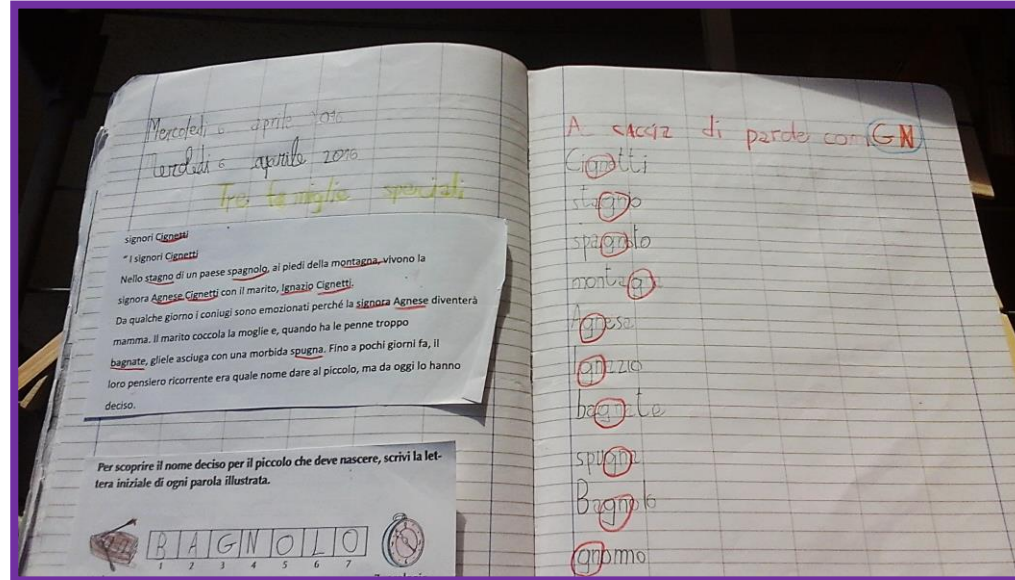 Mercoledì 6 aprile 2016
Mercoledì 6 aprile 2016
Tre famiglie speciali
signori Cignetti
“ I signori Cignetti
Nello stagno di un paese spagnolo, ai piedi della montagna, vivono la
signora Agnese Cignetti con il marito, Ignazio Cignetti.
Da qualche giorno i coniugi sono emozionati perché la signora Agnese diventerà
mamma. Il marito coccola la moglie e, quando ha le penne troppo
bagnate, gliele asciuga con una morbida spugna. Fino a pochi giorni fa, il
loro pensiero ricorrente era quale nome dare al piccolo, ma da oggi lo hanno
deciso.
Per scoprire il nome deciso per il piccolo che deve nascere, scrivi la let-
tera iniziale di ogni parola illustrata.
B A G N O L O
1 2 3 4 5 6 7
A caccia di parole con GN
Cignetti
stagno
spagnolo
montagna
Agnese
Ignazio
bagnate
spugna
Bagnolo
gnommo